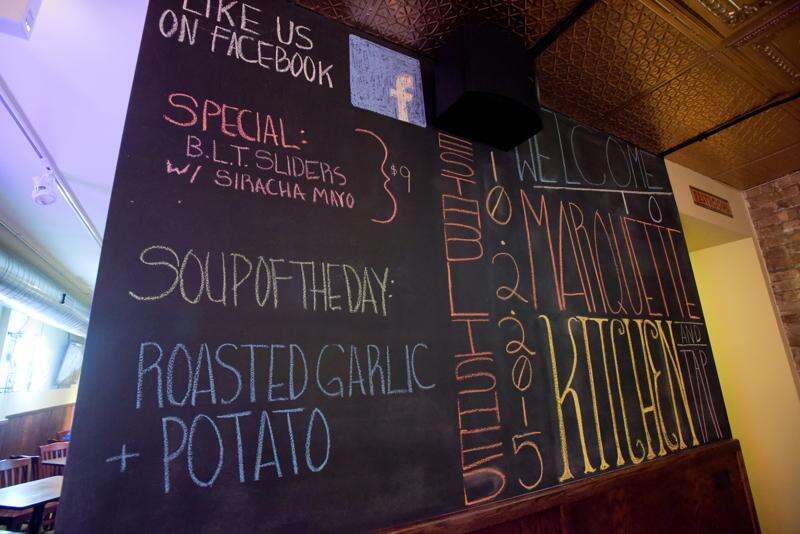 LIKE US
ON FACEBOOK
f
SPECIAL:
B.L.T. SLIDERS
W/ SIRACHA MAYO
$9
SOUP OF THE DAY:
ROASTED GARLIC
+ POTATO
ESTABLISHED
10.22.2015
WELCOME
TO
MARQUETTE
KITCHEN
AND
TAP